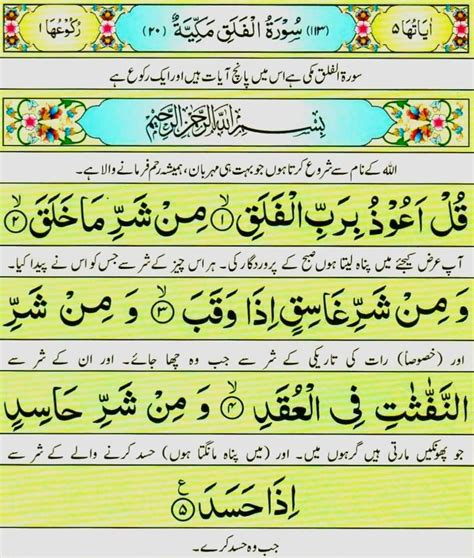 اٰیَاتُهَا ۵ (۱۱۳) سُوْرَةُ الْفَلَقِ مَکِّیَّةٌ (۲۰) رُکُوْعُهَا ۱
سورۃ الفلق مکی ہے اس میں پانچ آیات ہیں اور ایک رکوع ہے
بِسْمِ اللّٰهِ الرَّحْمٰنِ الرَّحِیْمِ
اللہ کے نام سے شروع کرتا ہوں جو بہت ہی مہربان، ہمیشہ رحم فرمانے والا ہے۔
قُلْ اَعُوْذُ بِرَبِّ الْفَلَقِ ۙ﴿۱﴾ مِنْ شَرِّ مَا خَلَقَ ۙ﴿۲﴾
آپ عرض کیجئے میں پناہ لیتا ہوں صبح کے پروردگار کی۔ ہر اس چیز کے شر سے جس کو اس نے پیدا کیا۔
وَ مِنْ شَرِّ غَاسِقٍ اِذَا وَقَبَ ۙ﴿۳﴾ وَ مِنْ شَرِّ
اور (خصوصاً) رات کی تاریکی کے شر سے جب وہ چھا جائے۔ اور ان کے شر سے
النَّفّٰثٰتِ فِی الْعُقَدِ ۙ﴿۴﴾ وَ مِنْ شَرِّ حَاسِدٍ
جو پھونکیں مارتی ہیں گرہوں میں۔ اور (میں پناہ مانگتا ہوں) حسد کرنے والے کے شر سے
اِذَا حَسَدَ ﴿۵﴾ ع
جب وہ حسد کرے۔